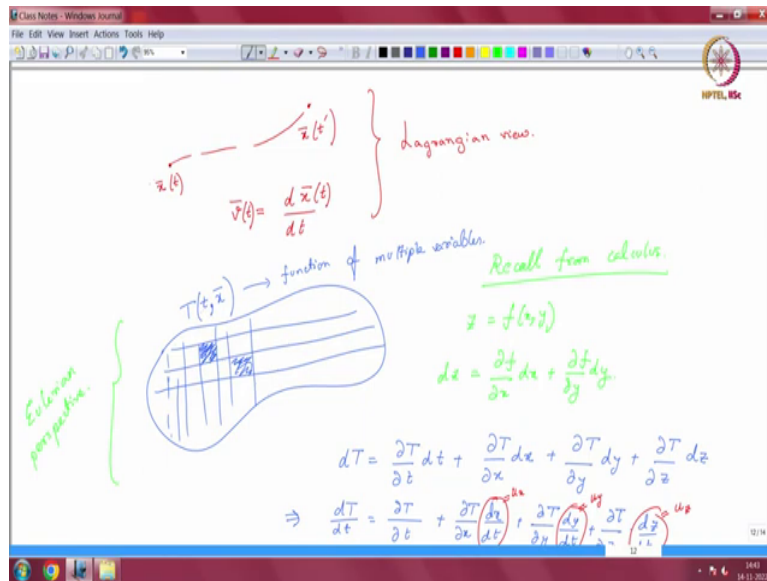 Class Notes - Windows Journal
File Edit View Insert Actions Tools Help
NPTEL, IISc
x̄(t)
x̄(t′)
v̄(t) = d x̄(t) / dt
Lagrangian view.
T(t, x̄) → function of multiple variables.
Eulerian perspective.
Recall from calculus.
z = f(x,y)
dz = ∂f/∂x dx + ∂f/∂y dy.
dT = ∂T/∂t dt + ∂T/∂x dx + ∂T/∂y dy + ∂T/∂z dz
⇒ dT/dt = ∂T/∂t + ∂T/∂x (dx/dt) ux + ∂T/∂y (dy/dt) uy + ∂T/∂z (dz/dt) uz
12
12/14
14:43